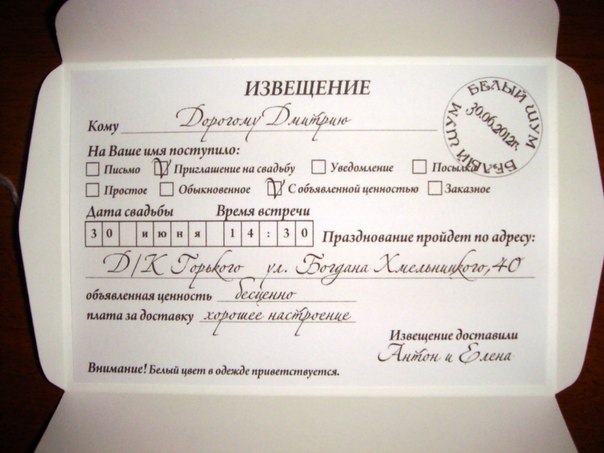 ИЗВЕЩЕНИЕ
Кому Дорогому Дмитрию
БЕЛЫЙ ШУМ
30.06.2012г.
БЕЛЫЙ ШУМ
На Ваше имя поступило:
Письмо Приглашение на свадьбу Уведомление Посылка
Простое Обыкновенное С объявленной ценностью Заказное
Дата свадьбы Время встречи
30 июня 14:30 Празднование пройдет по адресу:
Д/К Горького ул. Богдана Хмельницкого, 40
объявленная ценность бесценно
плата за доставку хорошее настроение
Извещение доставили
Антон и Елена
Внимание! Белый цвет в одежде приветствуется.